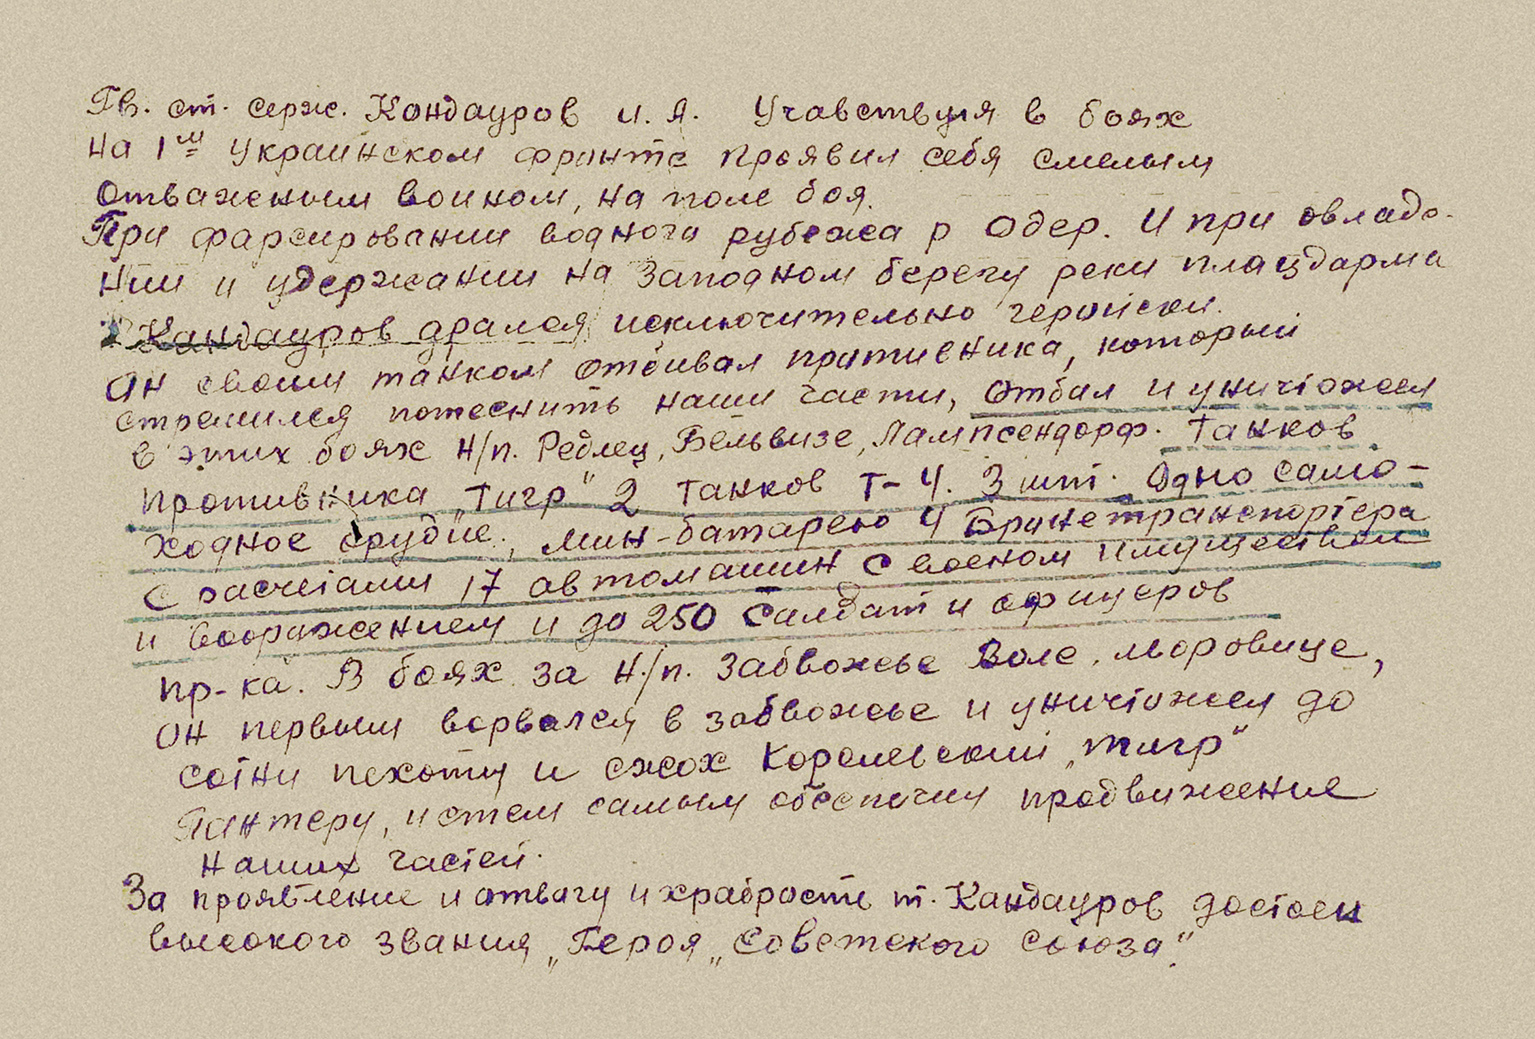 Гв. ст. серж. Кондауров И. Я. Учавствуя в боях
на 1ᵐ Украинском фронте проявил себя смелым
отваженым воином, на поле боя.
При фарсировании водного рубежа р Одер. И при овладе-
нии и удержании на Заподном берегу реки плацдарма
Кандауров дрался исключительно геройски.
Он своим танком отбивал противника, который
стремился потеснить наши части, отбил и уничтожил
в этих боях н/п. Редлец, Бельвизе, Лампсендорф. Танков
противника „Тигр" 2 танков Т-4. 3 шт. Одно само-
ходное орудие, мин-батарею 4 Бронетранспортера
с расчетами 17 автомашин с военом имуществом
и вооражением и до 250 салдат и офицеров
пр-ка. В боях за н/п. Забвожье Воле. Моровице,
он первым ворвался в Забвожье и уничтожил до
сотни пехоты и сжох Королевский „тигр"
Пантеру, и стем самым обеспечил продвижение
наших частей.
За проявление и отвагу и храбрость т. Кандауров достоен
высокого звания „Героя „Советского Союза."